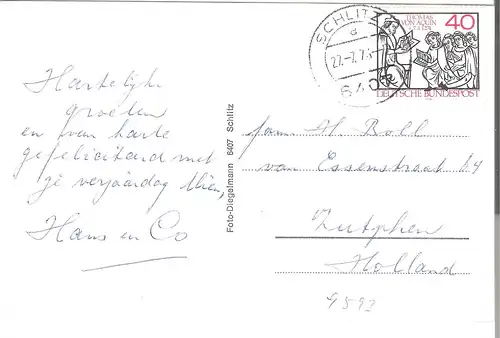 Hartelijke
groeten
en van harte
gefeliciteerd met
je verjaardag Mien,
Hans en Co
Foto-Diegelmann 6407 Schlitz
SCHLITZ
a
6407
THOMAS
VON AQUIN
40
DEUTSCHE BUNDESPOST
fam. H. Boll
van Essenstraat
Zutphen
Holland